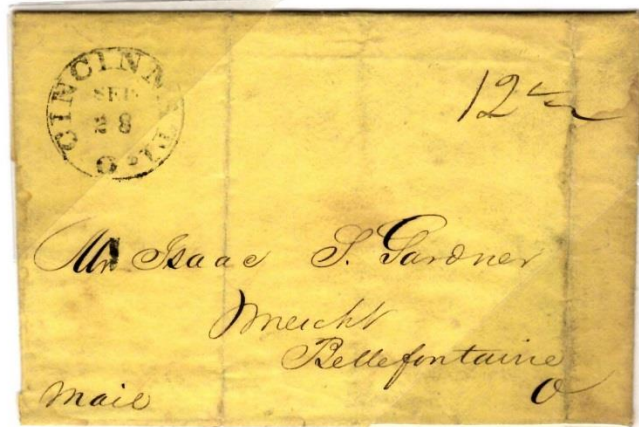 CINCINNATI. O
SEP
28
12½
Mr Isaac S. Gardner
Mercht
Bellefontaine
O
Mail